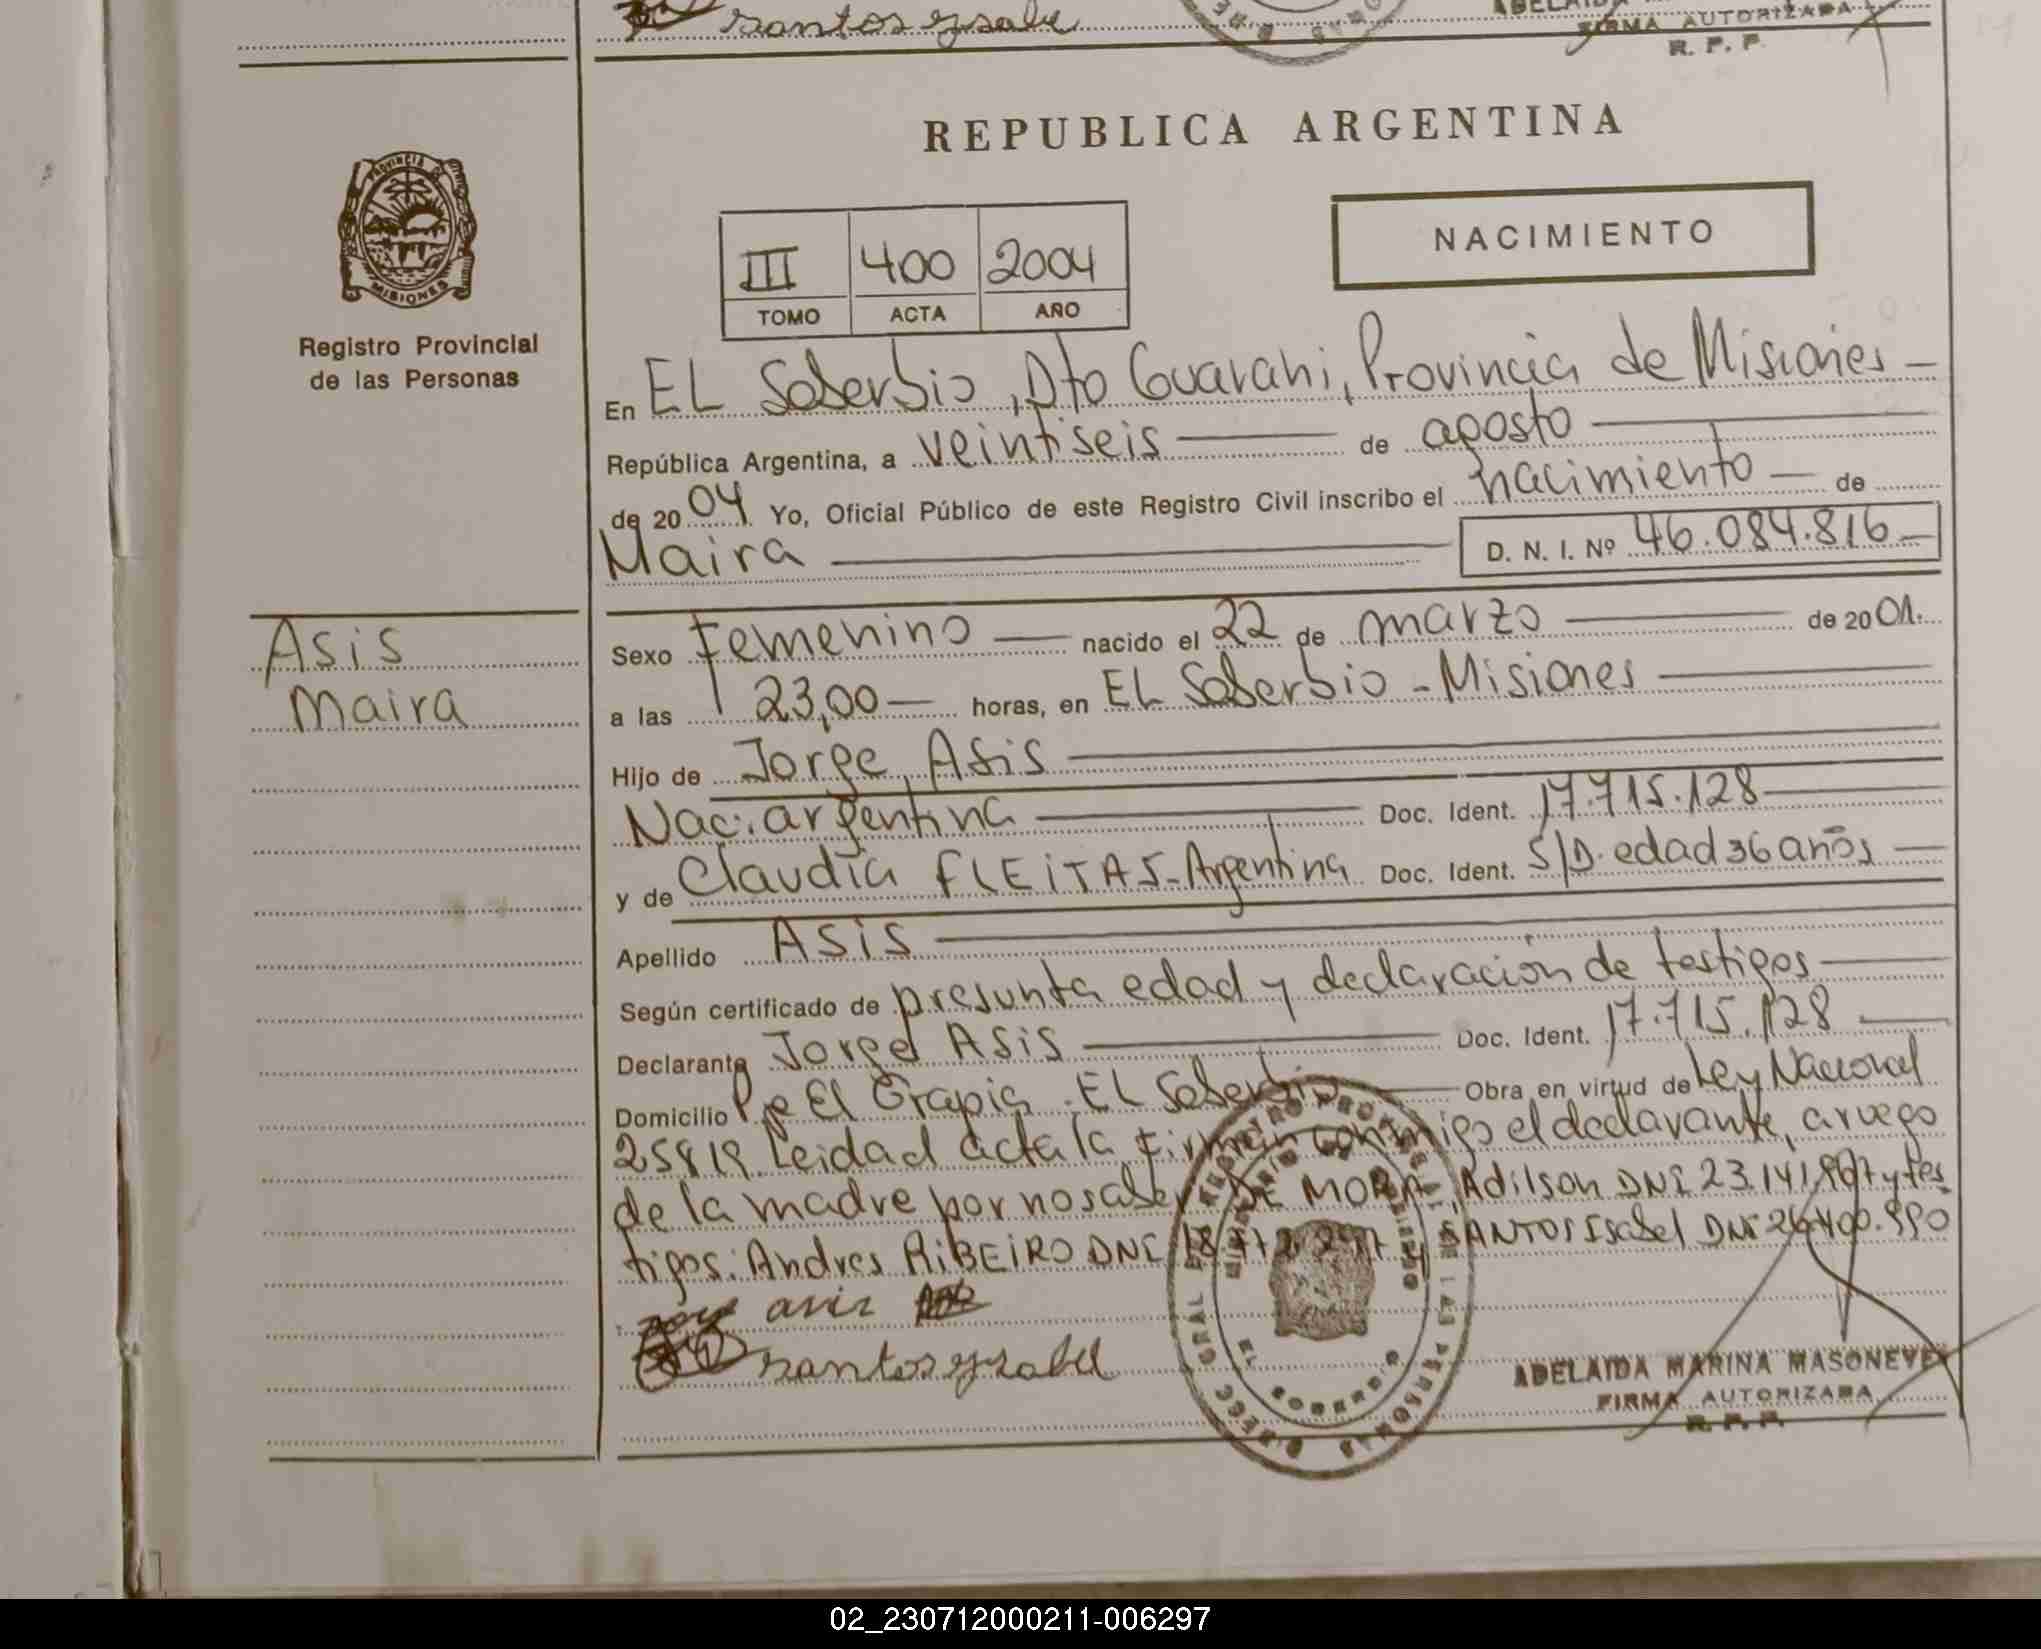 santos ysabel
FIRMA AUTORIZADA
R. P. P.
REPUBLICA ARGENTINA
PROVINCIA DE
MISIONES
Registro Provincial
de las Personas
III 400 2004
TOMO ACTA AÑO
NACIMIENTO
En EL Soberbio, Dto Guarani, Provincia de Misiones -
República Argentina, a veintiseis de agosto
de 2004 Yo, Oficial Público de este Registro Civil inscribo el nacimiento de
Maira D. N. I. Nº 46.084.816
Asis
Maira
Sexo Femenino nacido el 22 de marzo de 2001.
a las 23,00 horas, en EL Soberbio - Misiones
Hijo de Jorge, Asis
Nac. argentina Doc. Ident. 17.715.128
y de Claudia FLEiTAS - Argentina Doc. Ident. S/D. edad 36 años
Apellido Asis
Según certificado de presunta edad y declaración de testigos
Declarante Jorge Asis Doc. Ident. 17.715.128
Domicilio Pje El Grapia - EL Soberbio Obra en virtud de Ley Nacional
25819. Leidad acta la firman conmigo el declarante, a ruego
de la madre por no saber DE MORA, Adilson DNI 23.141.907 y tes
tigos: Andres RiBEiRO DNI y SANTOS Isabel DNI 26.400.990
asis
santos ysabel
ADELAIDA MARINA MASONEVE
FIRMA AUTORIZADA
R. P. P.
02_230712000211-006297